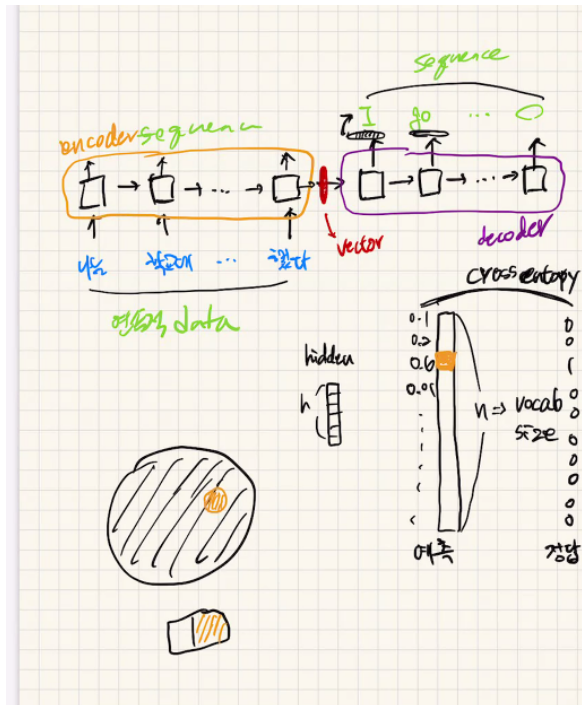 sequence
I go ... O
encoder sequence
...
...
나는 학교에 ...
vector
decoder
data
cross entopy
hidden
h
0.1
0.2
0.6
0.05
n => vocab
size
0
0
1
0
0
0
0
0
0
0
예측
정답